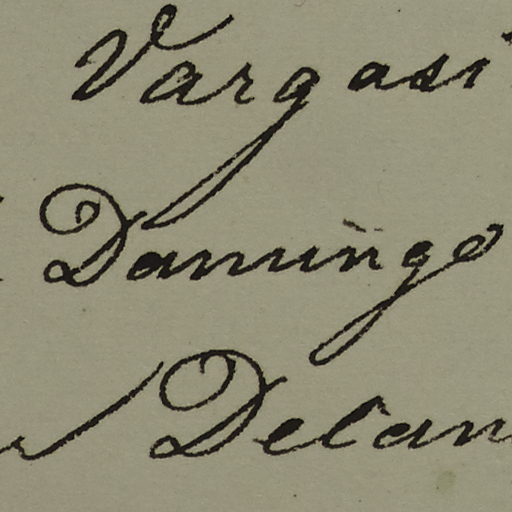 Vargasi
Damingo
Delan